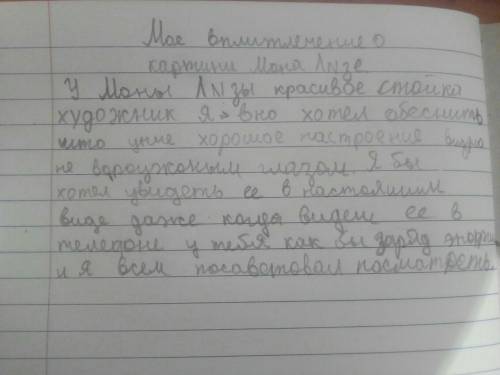 Мое вплитлечение о
картини Мона Лызе
У Моны Лызы красивое стойка
художник явно хотел обеснить
што уние хорошое настроение видно
не вароужоным глазам. Я бы
хотел увидеть ее в настояшим
виде даже когда видеш ее в
телефоне у тебя как бы заряд
и я всем посаветовал посматреть.